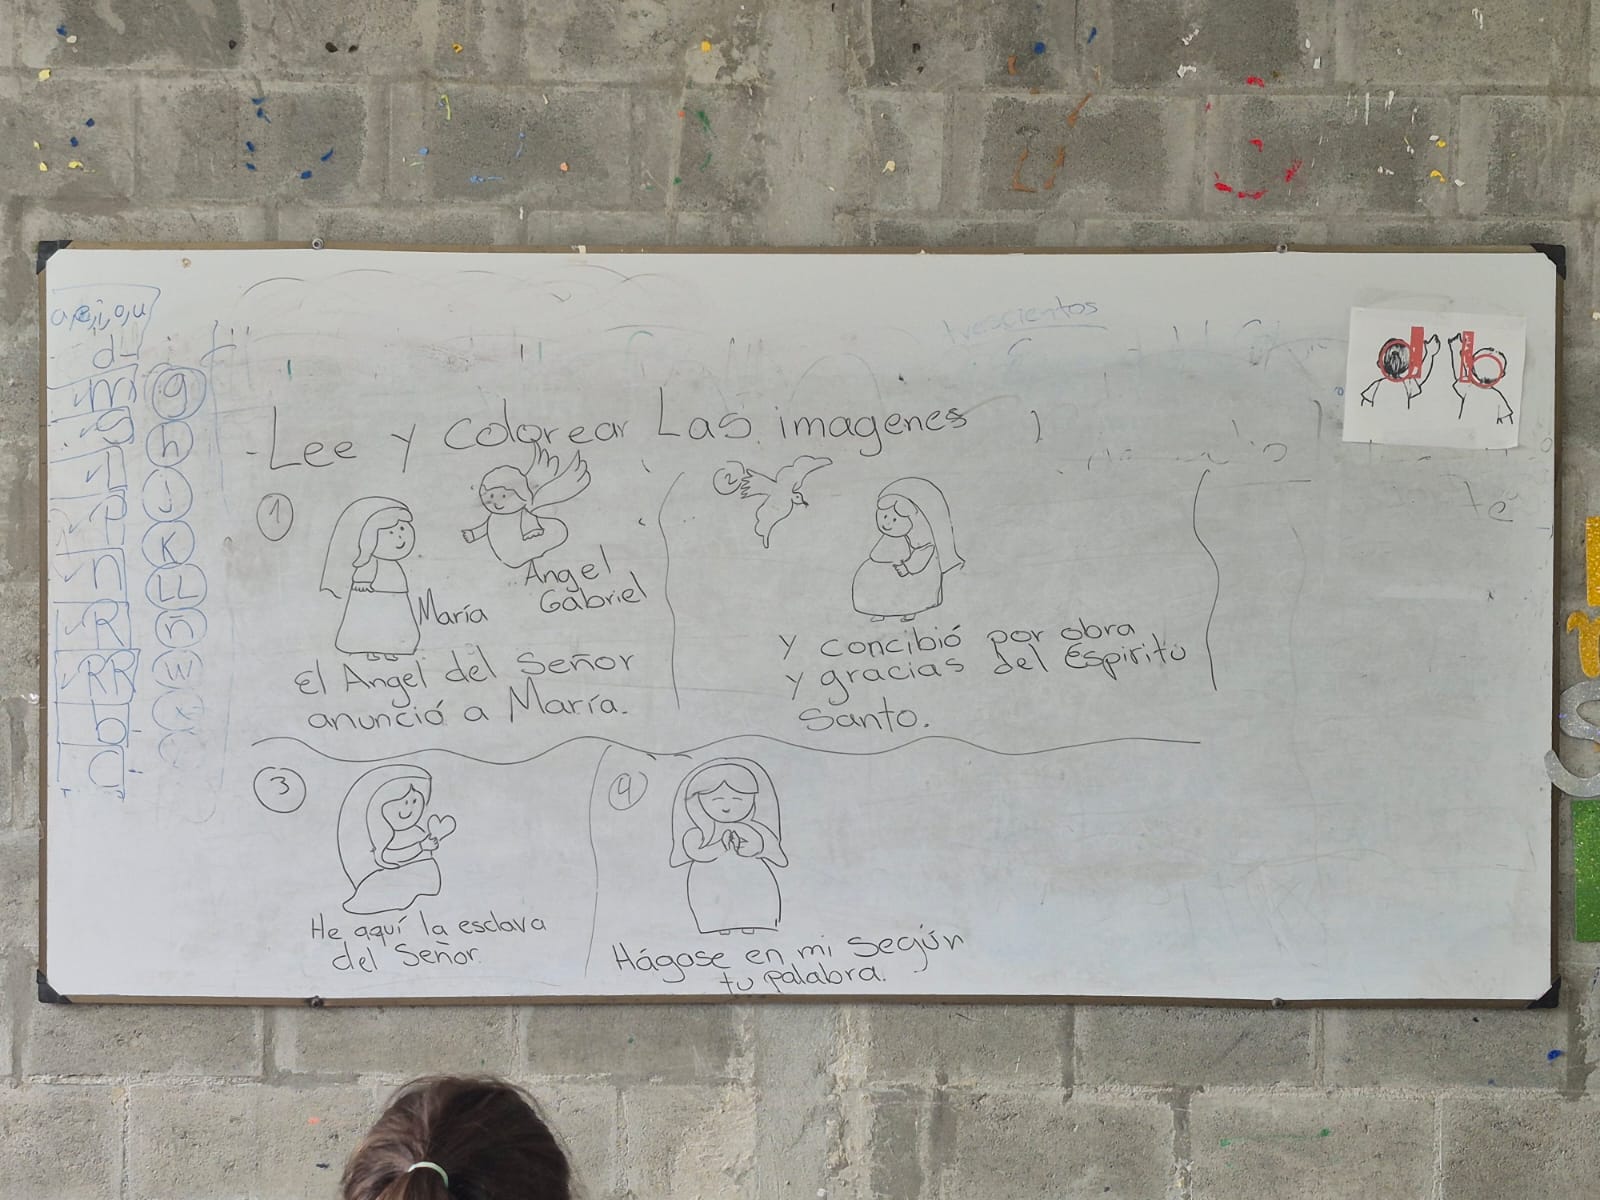 a,e,i,o,u
d
m
s
l
p
n
R
RR
b
d
g
h
j
K
LL
ñ
W
x
trescientos
d b
Lee y colorear Las imagenes
1
María
Angel
Gabriel
El Angel del Señor
anunció a María.
2
y concibió por obra
y gracias del Espiritu
Santo.
3
He aquí la esclava
del Señor
4
Hágase en mi según
tu palabra.